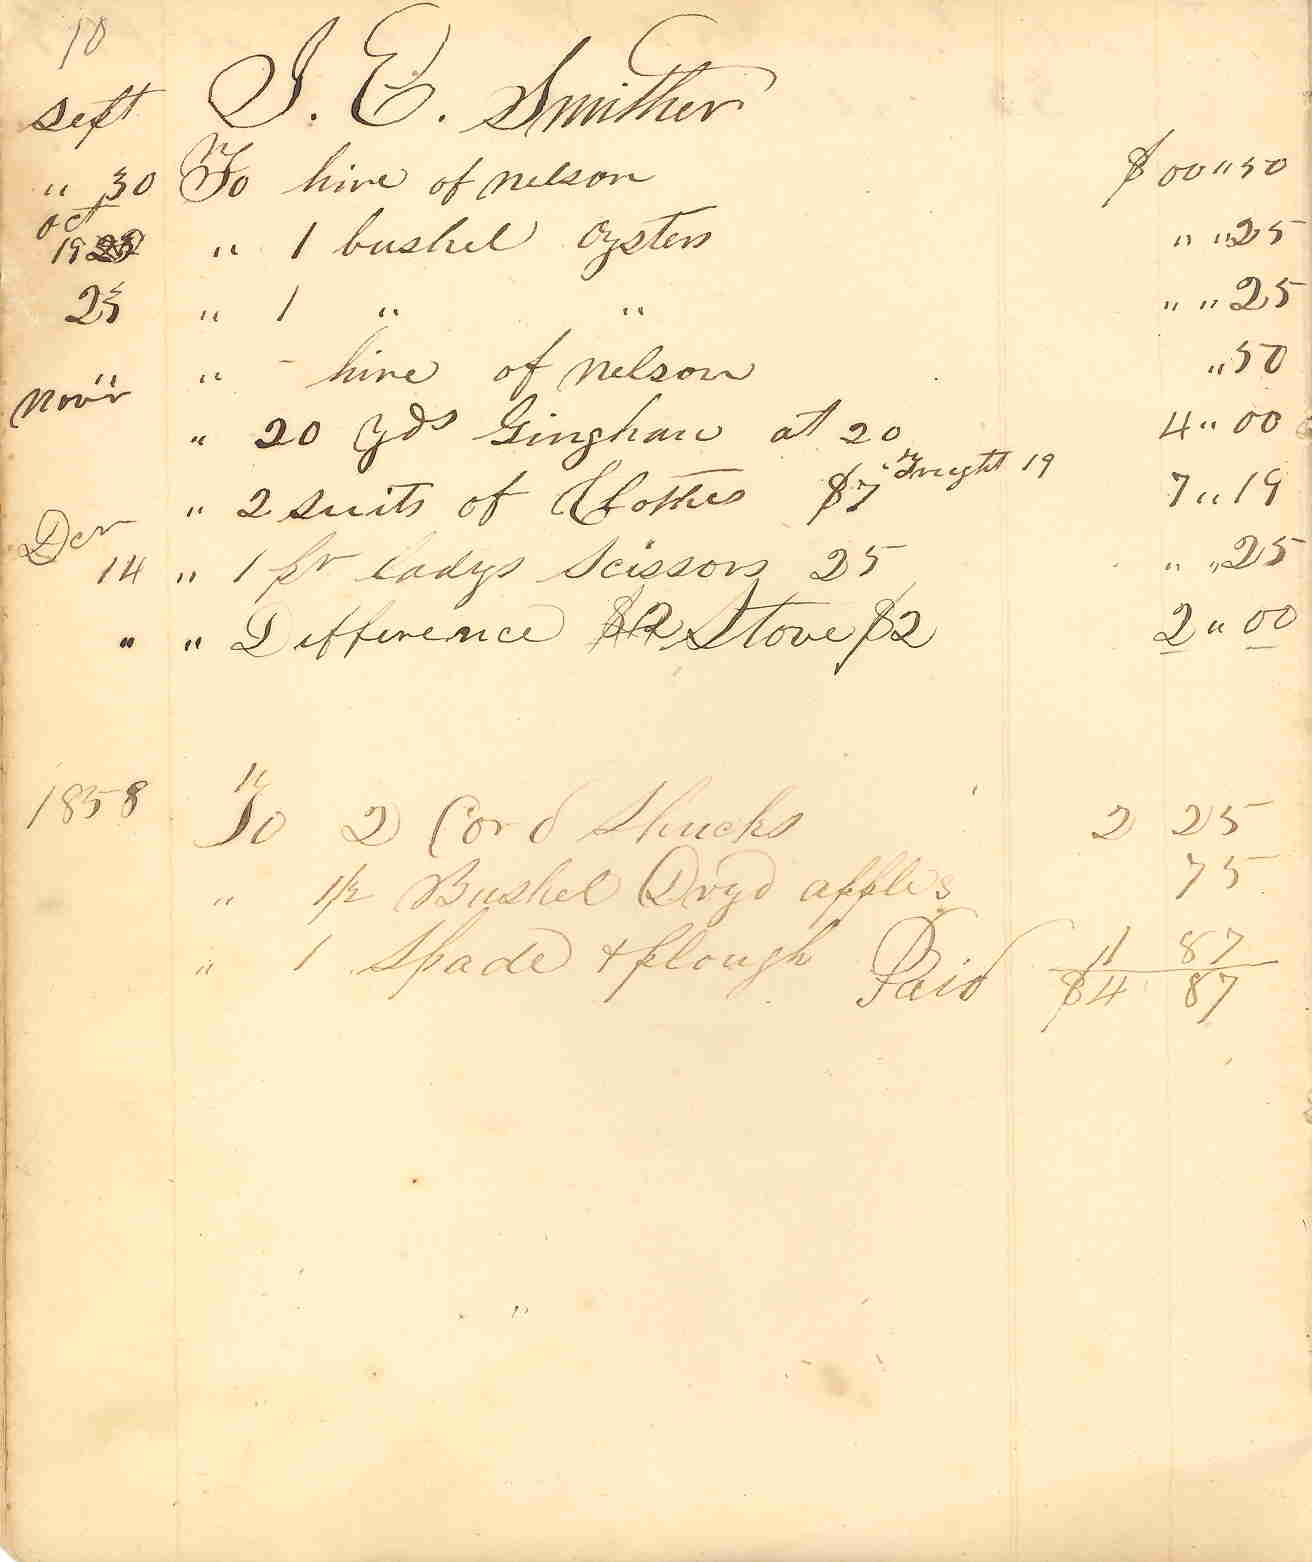 10
Sept J. E. Smither
" 30 To hire of nelson $ 00 " 50
oct
19 " 1 bushel oysters " " 25
25 " 1 " " " " 25
" " - hire of nelson " 50
Novr
" 20 yds Ginghau at 20 4 " 00
" 2 suits of Clothes $7 Freight 19 7 " 19
Decr
14 " 1 pr ladys scissors 25 " " 25
" " Difference Stove $2 2 " 00
1858 To 2 Cord Shucks 2 25
" 1 1/2 Bushel Dryd apples 75
" 1 Spade + plough Paid 1 87
$4 87